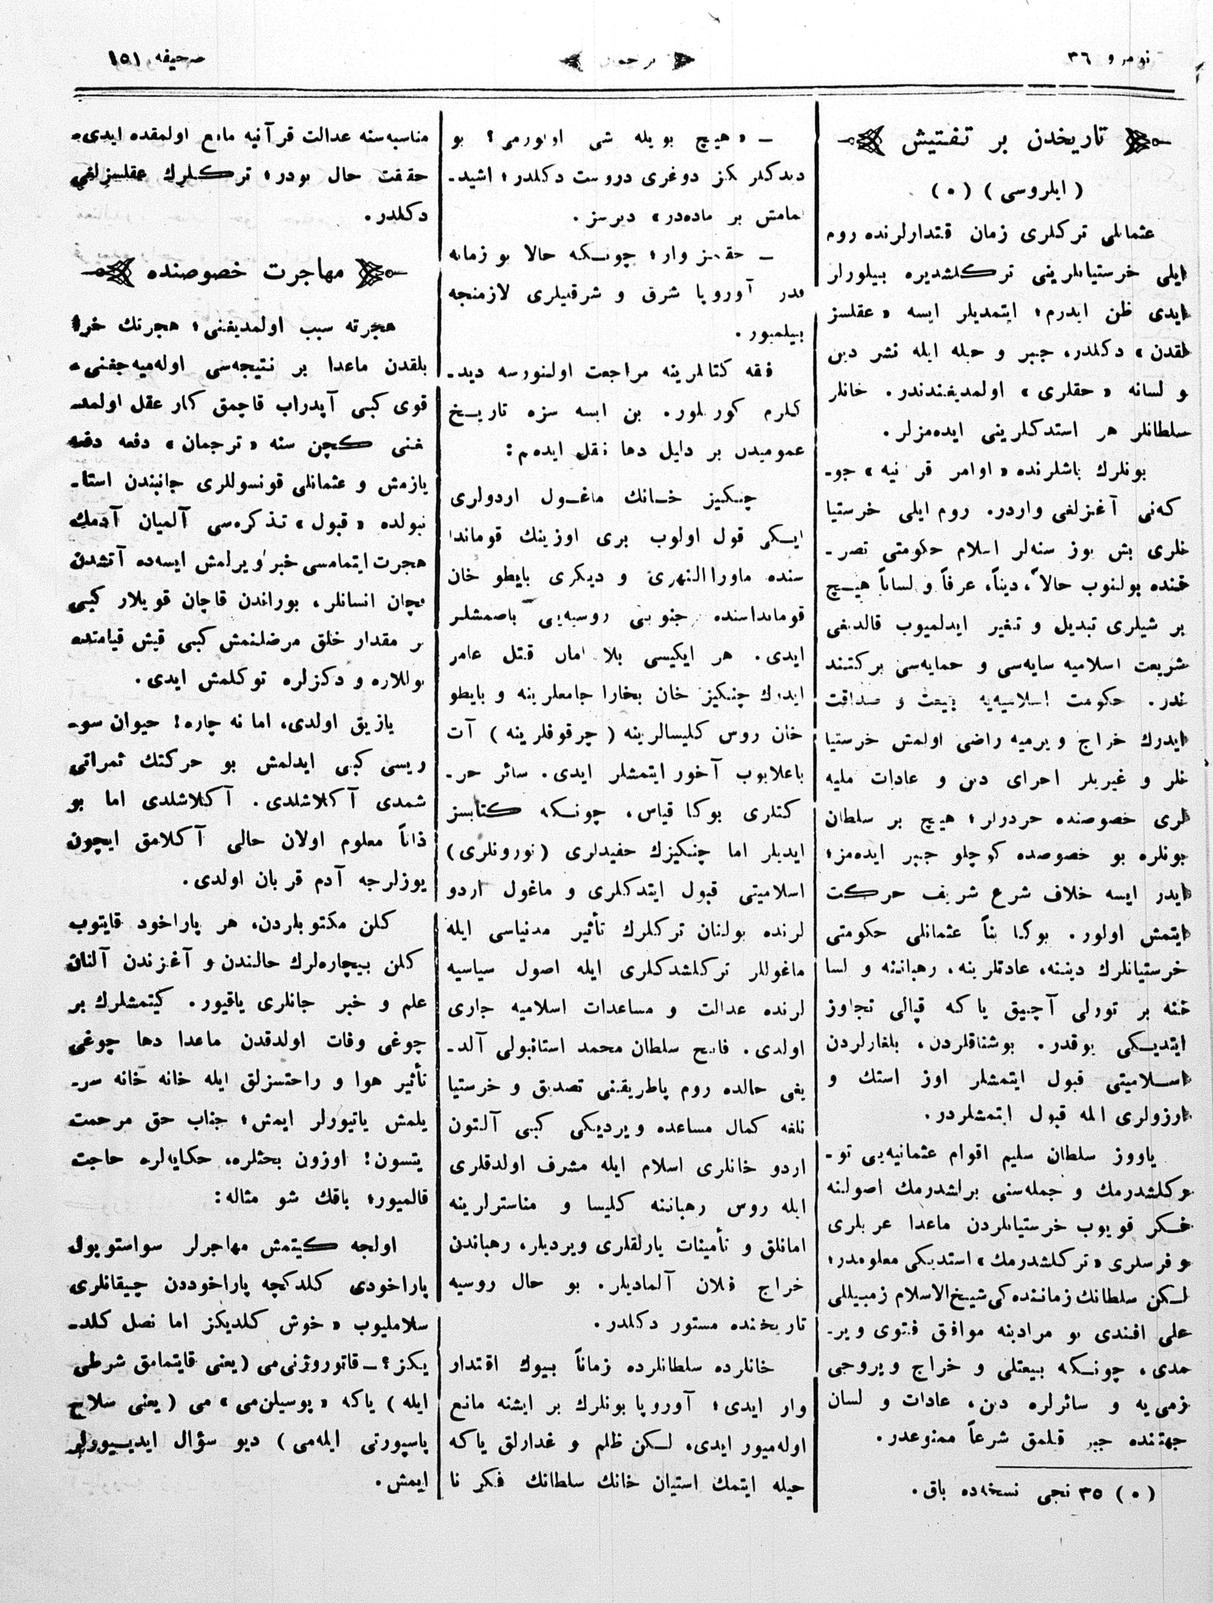 نومرو ٣٦
ترجمان
صحيفه ١٥١
تاريخدن بر تفتيش
( ايلروسى ) (٠)
عثمانلى تركلرى زمان اقتدارلرنده روم
ايلى خرستيانلرينى تركلشديره بيلورلر
ايدى ظن ايدرم؛ ايتمديلر ايسه « عقلسز
لقدن » دكلدر، جبر و حيله ايله نشر دين
و لسانه « حقلرى » اولمديغندندر. خانلر
سلطانلر هر استدكلرينى ايده‌مزلر.
بونلرك باشلرنده « اوامر قرآنيه » جو-
كه‌نى آغزلغى واردر. روم ايلى خرستيا
نلرى بش يوز سنه‌لر اسلام حكومتى تصر-
فنده بولنوب حالاً، ديناً، عرفاً و لساناً هيچ
بر شيلرى تبديل و تغير ايدلميوب قالدلغى
شريعت اسلاميه سايه‌سى و حمايه‌سى بركتند
ندر. حكومت اسلاميه‌يه بيعت و صداقت
ايدرك خراج ويرميه راضى اولمش خرستيا
نلر و غيريلر اجراى دين و عادات مليه
لرى خصوصنده حردرلر؛ هيچ بر سلطان
بونلره بو خصوصده كوچلو جبر ايده‌مز؛
ايدر ايسه خلاف شرع شريف حركت
ايتمش اولور. بوكا بناً عثمانلى حكومتى
خرستيانلرك ديننه، عادتلرينه، رهباننه و لسا
ننه بر تورلى آچيق ياكه قپالى تجاوز
ايتديكى يوقدر. بوشناقلردن، بلغارلردن
اسلاميتى قبول ايتمشلر اوز استك و
ارزولرى المه قبول ايتمشلردر.
ياووز سلطان سليم اقوام عثمانيه‌يى تو-
ركلشدرمك و جمله‌سنى براشدرمك اصولنه
فكر قويوب خرستيانلردن ماعدا عربلرى
و فرسلرى « تركلشدرمك » استديكى معلومدر؛
لكن سلطانك زماننده‌كى شيخ الاسلام زمبيللى
على افندى بو مرادينه موافق فتوى وير-
مدى، چونكه بيعتلى و خراج ويروجى
زميه و سائرلره دين، عادات و لسان
جهتنده جبر قلمق شرعاً ممنوعدر.
(٠) ٣٥ نجى نسخه‌ده باق.
— « هيچ بويله شى اولورمى؟ بو
ديدكلريكز دوغرى دروست دكلدر؛ اشيد-
لمامش بر ماده‌در » ديرسز.
— حقكز وار؛ چونكه حالا بو زمانه
قدر آوروپا شرق و شرقيلرى لازمنجه
بيلميور.
فقه كتابلرينه مراجعت اولنورسه ديد-
كلرم كوريلور. بن ايسه سزه تاريخ
عموميدن بر دليل دها نقل ايده‌م:
چنكيز خانك ماغول اردولرى
ايكى قول اولوب برى اوزينك قوماندا
سنده ماورا النهرى و ديكرى بايطو خان
قومانداسنده جنوبى روسيه‌يى باصمشلر
ايدى. هر ايكيسى بلا امان قتل عامر
ايدرك چنكيز خان بخارا جامعلرينه و بايطو
خان روس كليسالرينه ( چرقوفلرينه ) آت
باغلايوب آخور ايتمشلر ايدى. سائر حر-
كتلرى بوكا قياس، چونكه كتابسز
ايديلر اما چنكيزك حفيدلرى (نورونلرى)
اسلاميتى قبول ايتدكلرى و ماغول اردو
لرنده بولنان تركلرك تأثير مدنياسى ايله
ماغوللر تركلشدكلرى ايله اصول سياسيه
لرنده عدالت و مساعدات اسلاميه جارى
اولدى. فاتح سلطان محمد استانبولى آلد-
يغى حالده روم پاطريقنى تصديق و خرستيا
نلغه كمال مساعده ويرديكى كبى آلتون
اردو خانلرى اسلام ايله مشرف اولدقلرى
ايله روس رهباننه كليسا و مناسترلرينه
امانلق و تأمينات يارلقلرى ويرديلر، رهباندن
خراج فلان آلماديلر. بو حال روسيه
تاريخنده مستور دكلدر.
خانلرده سلطانلرده زماناً بيوك اقتدار
وار ايدى؛ آوروپا بونلرك بر ايشنه مانع
اوله‌ميور ايدى، لكن ظلم و غدارلق ياكه
حيله ايتمك استيان خانك سلطانك فكرنا
مناسبه‌سنه عدالت قرآنيه مانع اولمقده ايدى-
حقيقت حال بودر؛ تركلرك عقلسزلغى
دكلدر.
مهاجرت خصوصنده
هجرته سبب اولمديغنى؛ هجرتك خرا
بلقدن ماعدا بر نتيجه‌سى اوله‌ميه‌جغنى-
قوى كبى آيدراب قاچمق كار عقل اولمد-
غنى كچن سنه « ترجمان » دفعه دفعه
يازمش و عثمانلى قونسوللرى جانبندن استا-
نبولده « قبول » تذكره‌سى آلميان آدمك
هجرت ايتمامسى خبر ويرلمش ايسه‌ده آتشدن
قچان انسانلر، بوراندن قاچان قويلار كبى
بر مقدار خلق مرضلنمش كبى قيش قيامتده
يوللاره و دكزلره توكلمش ايدى.
يازيق اولدى، اما نه چاره! حيوان سو-
ريسى كبى ايدلمش بو حركتك ثمراتى
شمدى آكلاشلدى. آكلاشلدى اما بو
ذاتاً معلوم اولان حالى آكلامق ايچون
يوزلرجه آدم قربان اولدى.
كلن مكتوبلردن، هر پاراخود قايتوب
كلن بيچاره‌لرك حالندن و آغزندن آلنان
علم و خبر جانلرى ياقيور. كيتمشلرك بر
چوغى وفات اولدقدن ماعدا دها چوغى
تأثير هوا و راحتسزلق ايله خانه خانه سر-
يلمش ياتيورلر ايمش؛ جناب حق مرحمت
يتسون! اوزون بحثلره، حكايه‌لره حاجت
قالميور؛ باقك شو مثاله:
اولجه كيتمش مهاجرلر سواستوپول
پاراخودى كلدكچه پاراخوددن چيقانلرى
سلامليوب « خوش كلديكز اما نصل كلد-
يكز؟ — قاتوروژنى‌مى (يعنى قايتمامق شرطى
ايله) ياكه « پوسيلن‌مى » مى (يعنى صلاح
پاسپورتى ايله‌مى) ديو سؤال ايديورلر
ايمش.